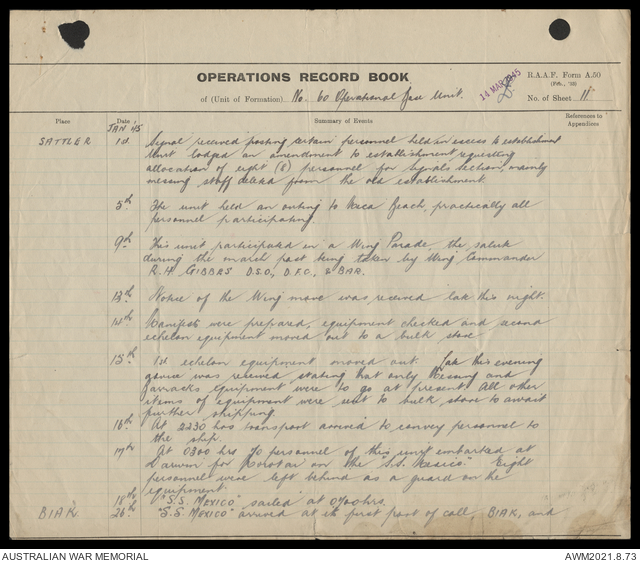 OPERATIONS RECORD BOOK
of (Unit of Formation) No. 60 Operational Base Unit.
14 MAR 1945
R.A.A.F. Form A.50
No. of Sheet 11
Place Date Summary of Events References to Appendices
JAN 45
SATTLER 1st. Signal received posting certain personnel held in excess to establishment
Unit lodged an amendment to establishment, requesting
allocation of eight (8) personnel for signals section, mainly
messing staff deleted from the old establishment.
5th. The unit held an outing to Beach, practically all
personnel participating.
9th. This unit participated in a Wing Parade, the salute
during the march past being taken by Wing Commander
R.H. GIBBES D.S.O., D.F.C., & BAR.
13th. Notice of the Wing move was received late this night.
14th. Manifests were prepared, equipment checked and second
echelon equipment moved out to a bulk store
15th. 1st echelon equipment moved out. Late this evening
advice was received stating that only Messing and
Barracks equipment were to go at present. All other
items of equipment were sent to bulk store to await
further shipping.
16th. At 2230 hrs transport arrived to convey personnel to
the ship.
17th At 0300 hrs personnel of this unit embarked at
Darwin for Morotai on the "S.S. Mexico". Eight
personnel were left behind as a guard on the
equipment.
18th. "S.S. MEXICO" sailed at 0700 hrs.
BIAK. 26th. "S.S. MEXICO" arrived at its first port of call, BIAK, and
AUSTRALIAN WAR MEMORIAL
AWM2021.8.73